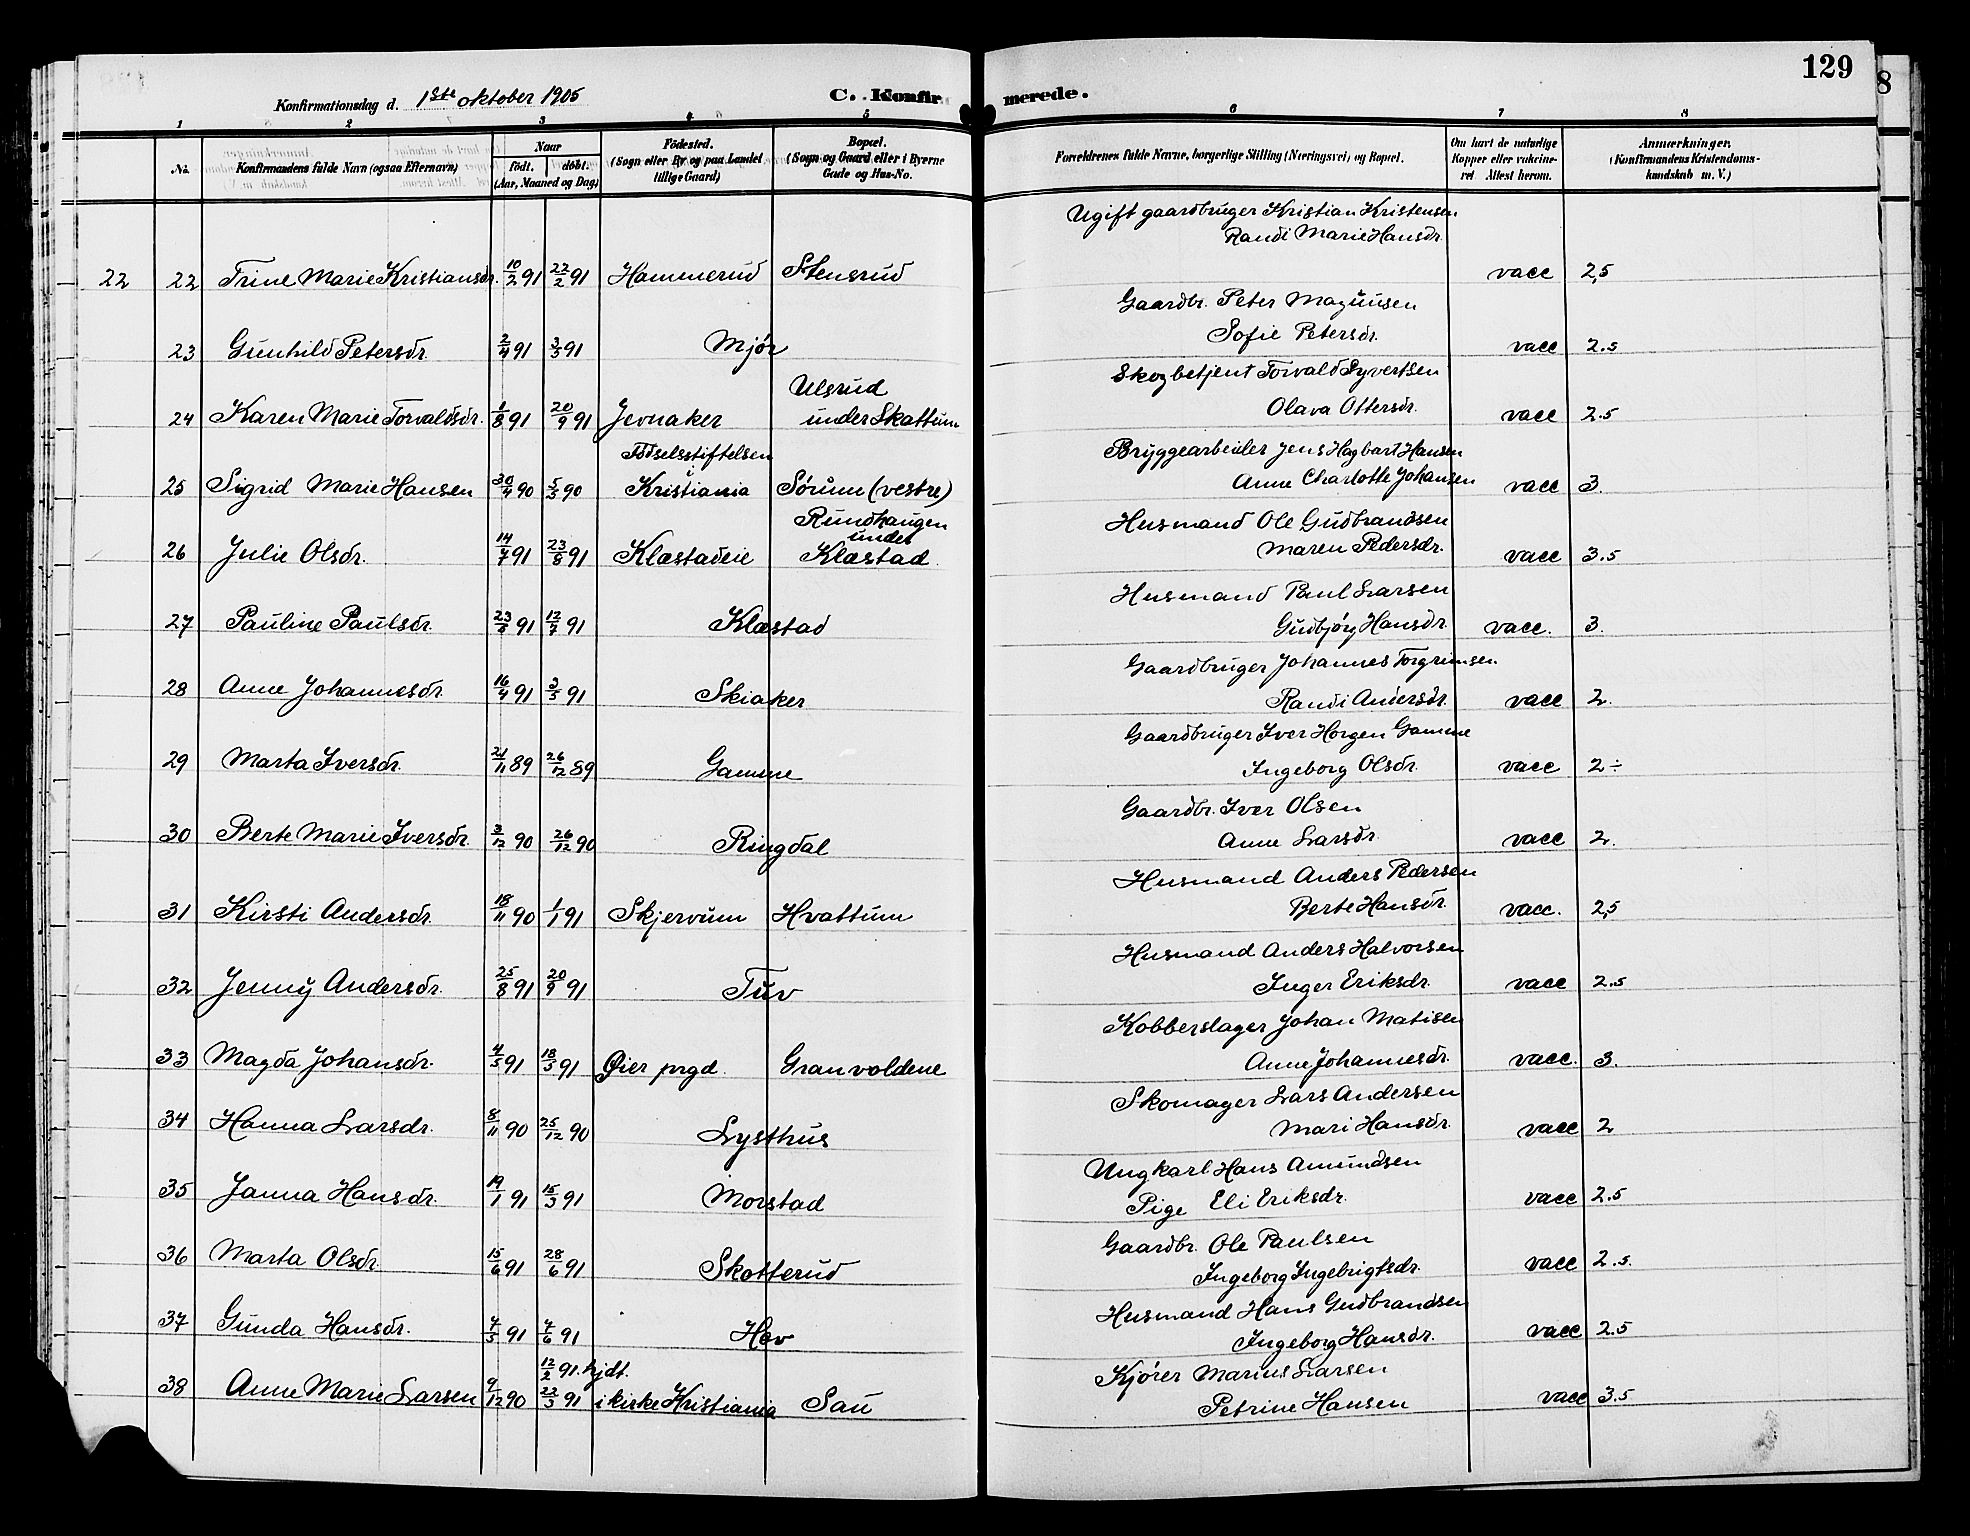 129
8
Konfirmationsdag d. 1ste oktober 1905
C. Konfirmerede.
1 2 3 4 5 6 7 8
No. Konfirmandens fulde Navn (ogsaa Efternavn) Naar født. døbt. (Aar, Maaned og Dag) Fødested. (Sogn eller By og paa Landet tillige Gaard) Bopæl. (Sogn og Gaard eller i Byerne Gade og Hus-No. Forældrenes fulde Navne, borgerlige Stilling (Næringsvei) og Bopæl. Om havt de naturlige Kopper eller vakcineret Attest herom. Anmærkninger. (Konfirmandens Kristendomskundskab m. V.)
Ugift gaardbruger Kristian Kristensen
Randi Marie Hansdr.
22 22 Trine Marie Kristiansdr. 10/2 91 22/2 91 Hammerud Stensrud vacc 2,5
Gaardbr. Peter Magnusen
Sofie Petersdr.
23 Gunhild Petersdr. 2/4 91 3/5 91 Mjør vacc 2.5
Skogbetjent Torvald Syvertsen
Ulsrud
24 Karen Marie Torvaldsdr. 1/8 91 20/9 91 Jevnaker under Skattum Olava Ottersdr. vacc 2.5
Fødselsstiftelsen Bryggearbeider Jens Hagbart Hansen
25 Sigrid Marie Hansen 30/4 90 5/5 90 Kristiania Sørum (vestre) Anne Charlotte Johansen vacc 3.
Rundhaugen Husmand Ole Gudbrandsen
under
26 Julie Olsdr. 14/7 91 23/8 91 Klæstadeie Klæstad Maren Pedersdr. vacc 3.5
Husmand Paul Larsen
27 Pauline Paulsdr. 91 12/7 91 Klæstad Gudbjørg Hansdr. vacc. 3.
Gaardbruger Johannes Torgrimsen
28 Anne Johannesdr 16/4 91 3/5 91 Skiaker Randi Andersdr. vacc 2.
Gaardbruger Iver Horgen Gamme
29 Marta Iversdr. 21/11 89 26/12 89 Gamme Ingeborg Olsdr. vacc 2 ÷
Gaardbr. Iver Olsen
30 Berte Marie Iversdr. 3/12 90 26/12 90 Ringdal Anne Larsdr vacc 2.
Husmand Anders Pedersen
31 Kirsti Andersdr. 18/11 90 1/1 91 Skjervum Hvattum Berte Hansdr. vacc. 2,5
Husmand Anders Halvorsen
32 Jenny Andersdr. 25/8 91 20/9 91 Tuv Inger Eriksdr. vacc 2.5
Kobberslager Johan Matisen
33 Magda Johansdr. 4/5 91 18/5 91 Øier prgd. Granvoldene Anne Johannesdr. vacc. 3.
Skomager Lars Andersen
34 Hanna Larsdr. 8/11 90 25/12 90 Lysthus Mari Hansdr. vacc 2
Ungkarl Hans Amundsen
35 Janna Hansdr. 19/1 91 15/3 91 Morstad Pige Eli Eriksdr. vacc 2.5
Gaardbr. Ole Paulsen
36 Marta Olsdr. 15/6 91 28/6 91 Skotterud Ingeborg Ingebrigtsdr. vacc 2.5.
Husmand Hans Gudbrandsen
37 Gunda Hansdr. 7/5 91 7/6 91 Hov Ingeborg Hansdr. vacc 2.5
12/2 91. hjdt. Kjører Marius Larsen
38 Anne Marie Larsen 9/12 90 22/3 91 i kirke Kristiania Sau Petrine Hansen vacc 3.5